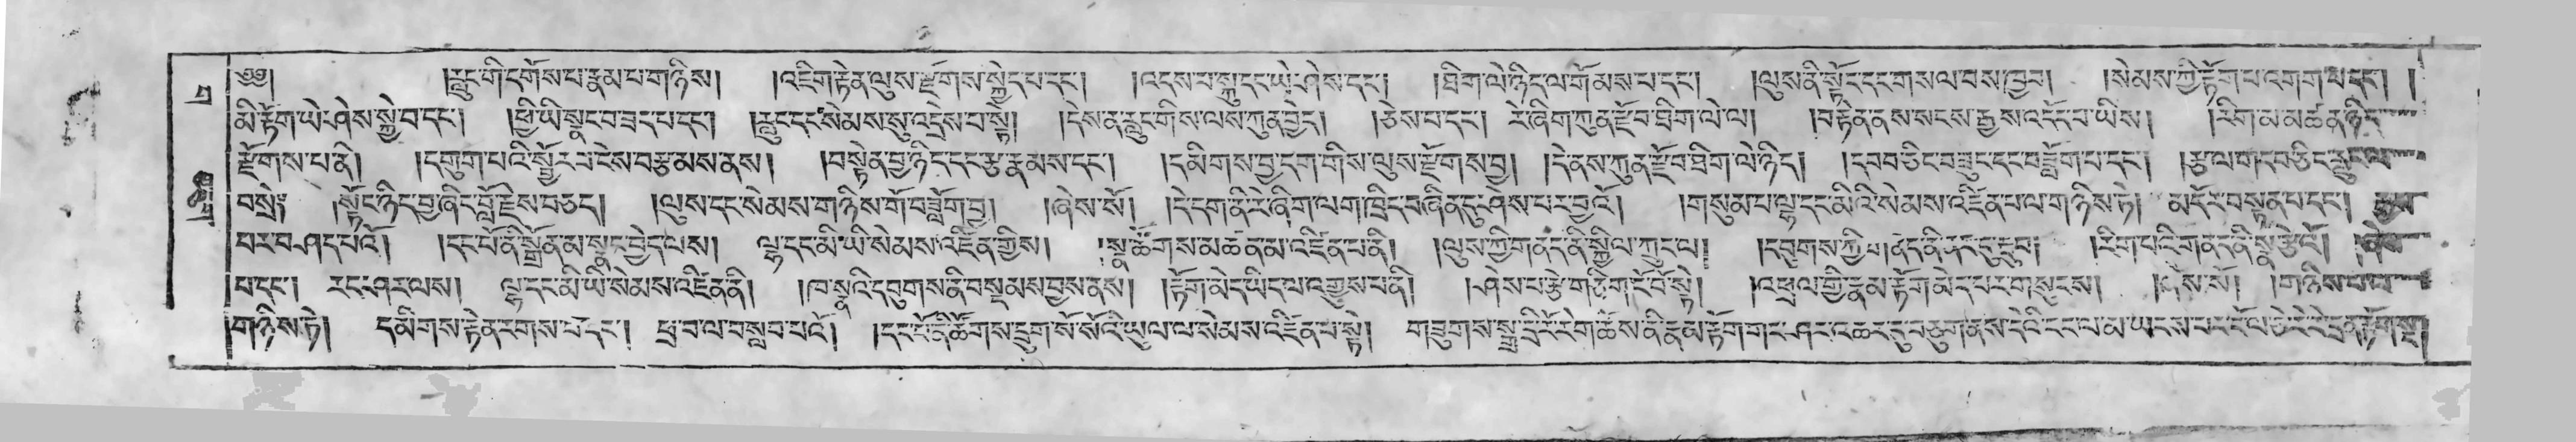 ༄༅། །རླུང་གི་དགོས་པ་རྣམ་པ་གཉིས། །འཇིག་རྟེན་ལུས་རྫོགས་སྐྱེད་པ་དང་། །འདས་པ་སྐུ་དང་ཡེ་ཤེས་དང་། །ཐིག་ལེ་ཉིད་ལ་གོམས་པ་དང་། །ལུས་ནི་སྟོང་དང་གསལ་བས་ཁྱབ། །སེམས་ཀྱི་རྟོག་པ་འགག་པ་དང་། །
མི་རྟོག་ཡེ་ཤེས་སྐྱེ་བ་དང་། །ཕྱི་ཡི་སྣང་བ་ཟད་པ་དང་། །རླུང་དང་སེམས་སུ་འདྲེས་པ་སྟེ། །དེས་ན་རླུང་གིས་ལས་ཀུན་བྱེད། །ཅེས་པ་དང་། རེ་ཞིག་ཀུན་རྫོབ་ཐིག་ལེ་ལ། །བརྟེན་ནས་སངས་རྒྱས་འདོད་པ་ཡིས། །རིག་མ་མཚན་ཉིད་
རྫོགས་པ་ནི། །དགུག་པའི་སྦྱོར་བ་ངེས་བརྩམས་ནས། །བསྟེན་བྱ་ཉིད་དང་རྩ་རྣམས་དང་། །དམིགས་བྱ་དག་གིས་ལུས་རྫོགས་བྱ། །དེ་ནས་ཀུན་རྫོབ་ཐིག་ལེ་ཉིད། །དབབ་ཅིང་བཟུང་དང་བཟློག་པ་དང་། །རྩ་ལ་གདབ་ཅིང་རླུང་ལ་
བསྲེ། །སྟོང་ཉིད་བྱ་ཞིང་བློ་རྗེས་བཅད། །ལུས་དང་སེམས་གཉིས་གོ་བཟློག་བྱ། །ཞེས་སོ། །དེ་དག་ནི་རེ་ཞིག་ལག་ཁྲིད་བཞིན་དུ་ཤེས་པར་བྱའོ། །གསུམ་པ་ལྷ་དང་མི་འི་སེམས་འཛིན་པ་ལ་གཉིས་ཏེ། མདོར་བསྟན་པ་དང་། རྒྱས་
པར་བཤད་པའོ། །དང་པོ་ནི་སྒྲོན་མ་སྣང་བྱེད་ལས། ལྷ་དང་མི་ཡི་སེམས་འཛིན་གྱིས། །སྣ་ཚོགས་མཚན་མ་འཛིན་པ་ནི། །ལུས་ཀྱི་གནད་ནི་སྐྱིལ་ཀྲུང་ལ། །དབུགས་ཀྱི་གནད་ནི་དལ་དུ་རྔུབ། །རིག་པའི་གནད་ནི་སྣ་རྩེ་འོ། །
པ་དང་། རང་ཤར་ལས། ལྷ་དང་མི་ཡི་སེམས་འཛིན་ནི། །ཁ་སྣའི་དབུགས་ནི་བསྡམས་བྱས་ནས། །རྟོག་མེད་ཡིད་ལ་འགྱུས་པ་ནི། །ཤེས་པ་རྩེ་གཅིག་ངོ་བོ་སྟེ། །འཕྲལ་གྱི་རྣམ་རྟོག་མེད་པར་གསུངས། །ཞེས་སོ། །གཉིས་པ་ལ་
གཉིས་ཏེ། དམིགས་རྟེན་རགས་པ་དང་། ཕྲ་བ་ལ་བསླབ་པའོ། །དང་པོ་ནི་ཚོགས་དྲུག་སོ་སོའི་ཡུལ་ལ་སེམས་འཛིན་པ་སྟེ། གཟུགས་སྒྲ་དྲི་རོ་རེག་ཆོས་ནི་རྣམ་རྟོག་གང་ཤར་འཆར་དུ་བཅུག་ནས་དེའི་ངང་ལ་མ་ཡེངས་པར་